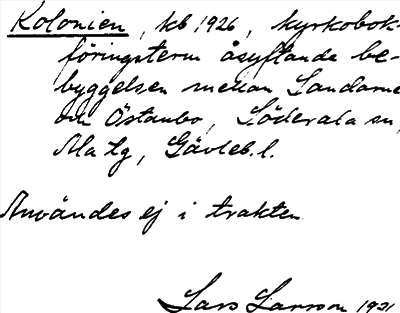 Kolonien, kb 1926, kyrkobok-
föringsterm åsyftande be-
byggelsen mellan Sandarne
och Östanbo, Söderala sn,
Ala tg, Gävleb. l.
Användes ej i trakten
Lars Larsson 1931